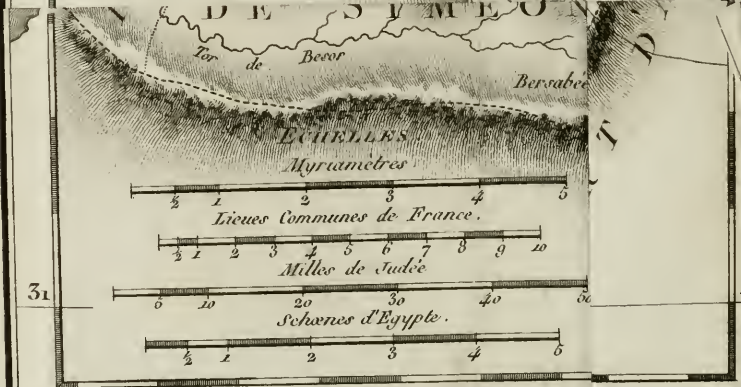 DE SYMEON
Tor de Besor
Bersabée
D
T
ECHELLES
Myriamètres
½ 1 2 3 4 5
Lieues Communes de France.
½ 1 2 3 4 5 6 7 8 9 10
Milles de Judée
5 10 20 30 40 50
31
Schœnes d'Egypte.
½ 1 2 3 4 5